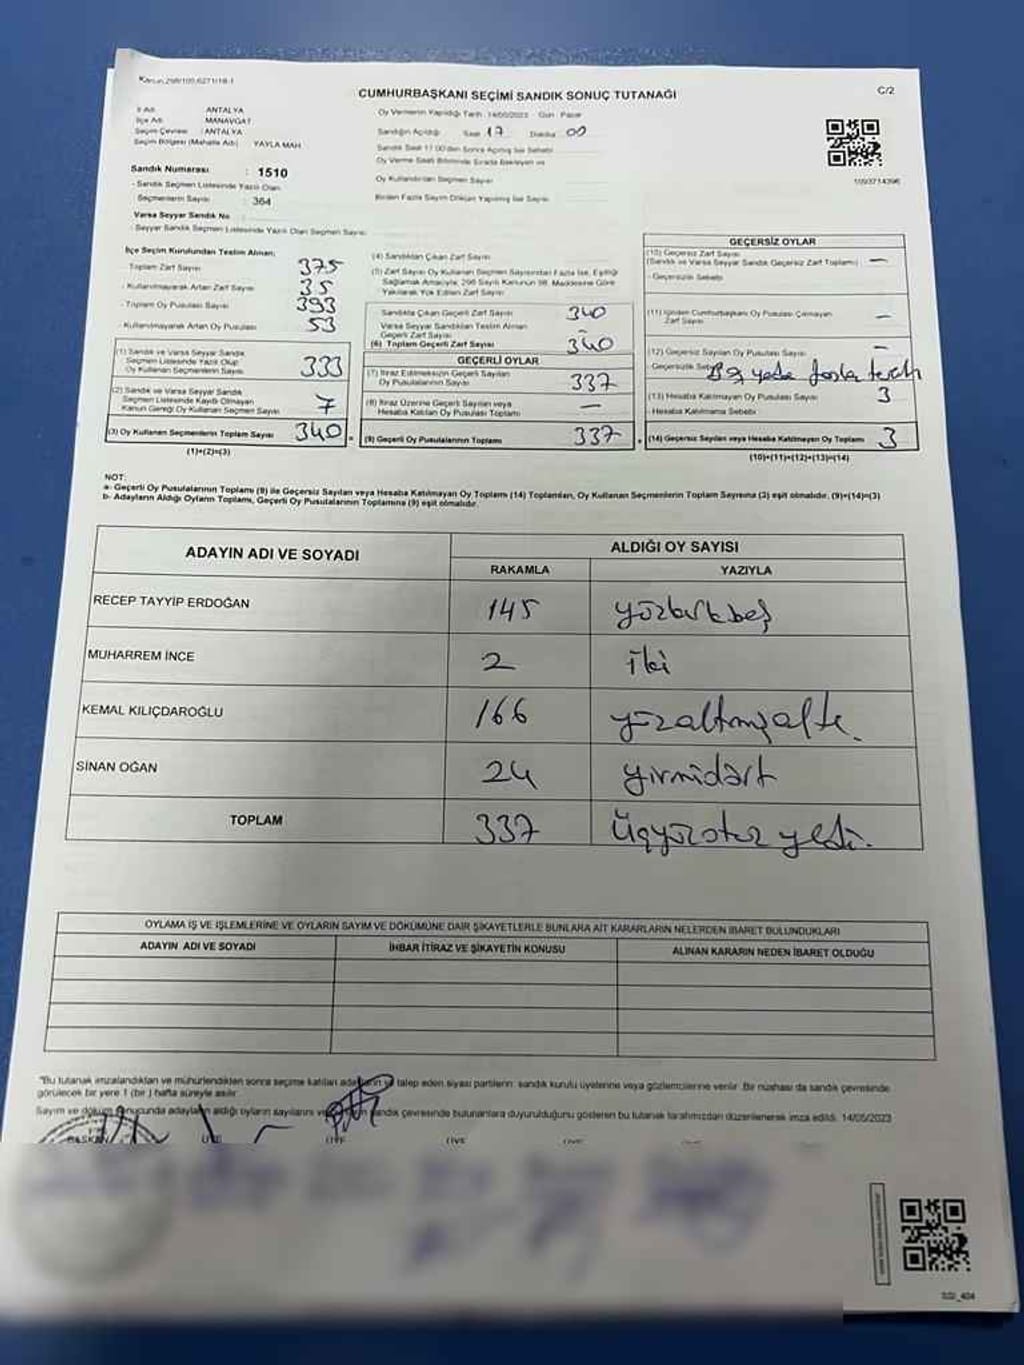 Kanun 298/105,6271/18-1
C/2
CUMHURBAŞKANI SEÇİMİ SANDIK SONUÇ TUTANAĞI
İl Adı : ANTALYA
İlçe Adı : MANAVGAT
Seçim Çevresi : ANTALYA
Seçim Bölgesi (Mahalle Adı) : YAYLA MAH.
Oy Vermenin Yapıldığı Tarih : 14/05/2023 Gün : Pazar
Sandığın Açıldığı Saat 17 Dakika 00
Sandık Saat 17.00'den Sonra Açılmış İse Sebebi
Oy Verme Saati Bitiminde Sırada Bekleyen ve
Oy Kullandırılan Seçmen Sayısı
Birden Fazla Sayım Döküm Yapılmış İse Sayısı
1093714396
Sandık Numarası : 1510
- Sandık Seçmen Listesinde Yazılı Olan
Seçmenlerin Sayısı : 364
Varsa Seyyar Sandık No :
- Seyyar Sandık Seçmen Listesinde Yazılı Olan Seçmen Sayısı
İlçe Seçim Kurulundan Teslim Alınan;
- Toplam Zarf Sayısı 375
- Kullanılmayarak Artan Zarf Sayısı 35
- Toplam Oy Pusulası Sayısı 393
- Kullanılmayarak Artan Oy Pusulası 53
(1) Sandık ve Varsa Seyyar Sandık
Seçmen Listesinde Yazılı Olup
Oy Kullanan Seçmenlerin Sayısı 333
(2) Sandık ve Varsa Seyyar Sandık
Seçmen Listesinde Kayıtlı Olmayan
Kanun Gereği Oy Kullanan Seçmen Sayısı 7
(3) Oy Kullanan Seçmenlerin Toplam Sayısı 340
(1)+(2)=(3)
(4) Sandıktan Çıkan Zarf Sayısı
(5) Zarf Sayısı Oy Kullanan Seçmen Sayısından Fazla İse, Eşitliği
Sağlamak Amacıyla, 298 Sayılı Kanunun 98. Maddesine Göre
Yakılarak Yok Edilen Zarf Sayısı
Sandıkta Çıkan Geçerli Zarf Sayısı 340
Varsa Seyyar Sandıktan Teslim Alınan
Geçerli Zarf Sayısı -
(6) Toplam Geçerli Zarf Sayısı 340
GEÇERLİ OYLAR
(7) İtiraz Edilmeksizin Geçerli Sayılan
Oy Pusulalarının Sayısı 337
(8) İtiraz Üzerine Geçerli Sayılan veya
Hesaba Katılan Oy Pusulası Toplamı —
(9) Geçerli Oy Pusulalarının Toplamı 337
GEÇERSİZ OYLAR
(10) Geçersiz Zarf Sayısı
(Sandık ve Varsa Seyyar Sandık Geçersiz Zarf Toplamı) —
- Geçersizlik Sebebi
(11) İçinden Cumhurbaşkanı Oy Pusulası Çıkmayan
Zarf Sayısı —
(12) Geçersiz Sayılan Oy Pusulası Sayısı —
- Geçersizlik Sebebi fazla tercih
(13) Hesaba Katılmayan Oy Pusulası Sayısı 3
- Hesaba Katılmama Sebebi
(14) Geçersiz Sayılan veya Hesaba Katılmayan Oy Toplamı 3
(10)+(11)+(12)+(13)=(14)
NOT:
a- Geçerli Oy Pusulalarının Toplamı (9) ile Geçersiz Sayılan veya Hesaba Katılmayan Oy Toplamı (14) Toplamları, Oy Kullanan Seçmenlerin Toplam Sayısına (3) eşit olmalıdır. (9)+(14)=(3)
b- Adayların Aldığı Oyların Toplamı, Geçerli Oy Pusulalarının Toplamına (9) eşit olmalıdır.
ADAYIN ADI VE SOYADI
ALDIĞI OY SAYISI
RAKAMLA YAZIYLA
RECEP TAYYİP ERDOĞAN 145 yüzkırkbeş
MUHARREM İNCE 2 iki
KEMAL KILIÇDAROĞLU 166 yüzaltmışaltı
SİNAN OĞAN 24 yirmidört
TOPLAM 337 Üçyüzotuz yedi.
OYLAMA İŞ VE İŞLEMLERİNE VE OYLARIN SAYIM VE DÖKÜMÜNE DAİR ŞİKAYETLERLE BUNLARA AİT KARARLARIN NELERDEN İBARET BULUNDUKLARI
ADAYIN ADI VE SOYADI
İHBAR İTİRAZ VE ŞİKAYETİN KONUSU
ALINAN KARARIN NEDEN İBARET OLDUĞU
"Bu tutanak imzalandıktan ve mühürlendikten sonra seçime katılan adayların ve talep eden siyasi partilerin sandık kurulu üyelerine veya gözlemcilerine verilir. Bir nüshası da sandık çevresinde
görülecek bir yere 1 (bir ) hafta süreyle asılır.
Sayım ve döküm sonucunda adayların aldığı oyların sayılarını ve sandık çevresinde bulunanlara duyurulduğunu gösteren bu tutanak tarafımızdan düzenlenerek imza edildi. 14/05/2023
BAŞKAN ÜYE ÜYE ÜYE ÜYE